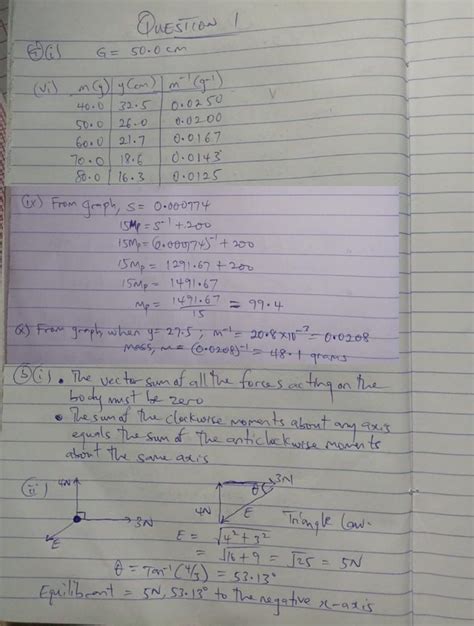 QUESTION 1
(i) G = 50.0 cm
(vi) m(g) y(cm) m⁻¹(g⁻¹)
40.0 32.5 0.0250
50.0 26.0 0.0200
60.0 21.7 0.0167
70.0 18.6 0.0143
80.0 16.3 0.0125
(ix) From graph, s = 0.000774
15Mp = s⁻¹ + 200
15Mp = (0.000774)⁻¹ + 200
15Mp = 1291.67 + 200
15Mp = 1491.67
Mp = 1491.67/15 = 99.4
(x) From graph when y = 27.5; m⁻¹ = 20.8 × 10⁻³ = 0.0208
mass, m = (0.0208)⁻¹ = 48.1 grams
(b)(i) • The vector sum of all the forces acting on the
body must be zero
• The sum of the clockwise moments about any axis
equals the sum of the anticlockwise moments
about the same axis
(ii) 4N 3N E
4N 3N θ E Triangle law.
E = √4² + 3²
= √16 + 9 = √25 = 5N
θ = Tan⁻¹(4/3) = 53.13°
Equilibrant = 5N, 53.13° to the negative x-axis